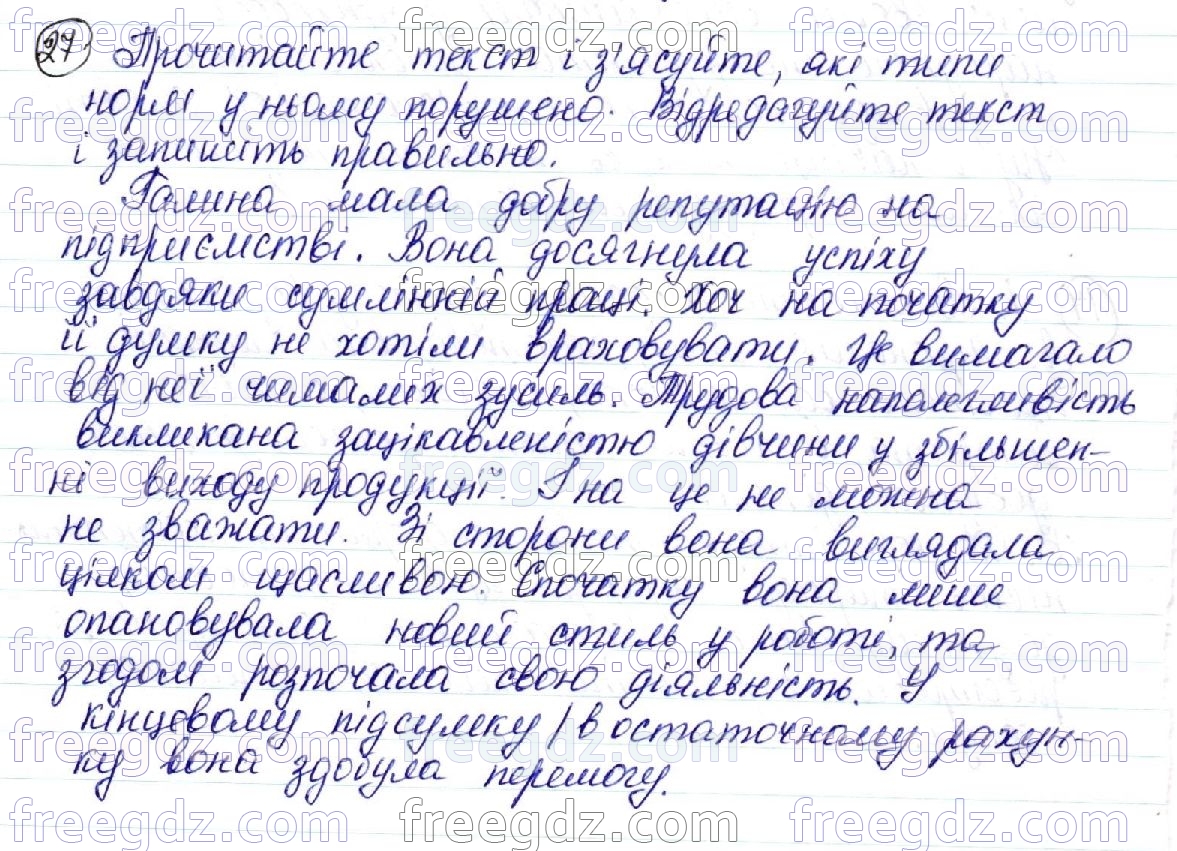 27. Прочитайте текст і з'ясуйте, які типи
норм у ньому порушено. Відредагуйте текст
і запишіть правильно.
Галина мала добру репутацію на
підприємстві. Вона досягнула успіху
завдяки сумлінній праці. Хоч на початку
її думку не хотіли враховувати. Це вимагало
від неї чималих зусиль. Трудова наполегливість
викликана зацікавленістю дівчини у збільшен-
ні виходу продукції. І на це не можна
не зважати. Зі сторони вона виглядала
цілком щасливою. Спочатку вона лише
опановувала новий стиль у роботі, та
згодом розпочала свою діяльність. У
кінцевому підсумку / в остаточному рахун-
ку вона здобула перемогу.
freegdz.com